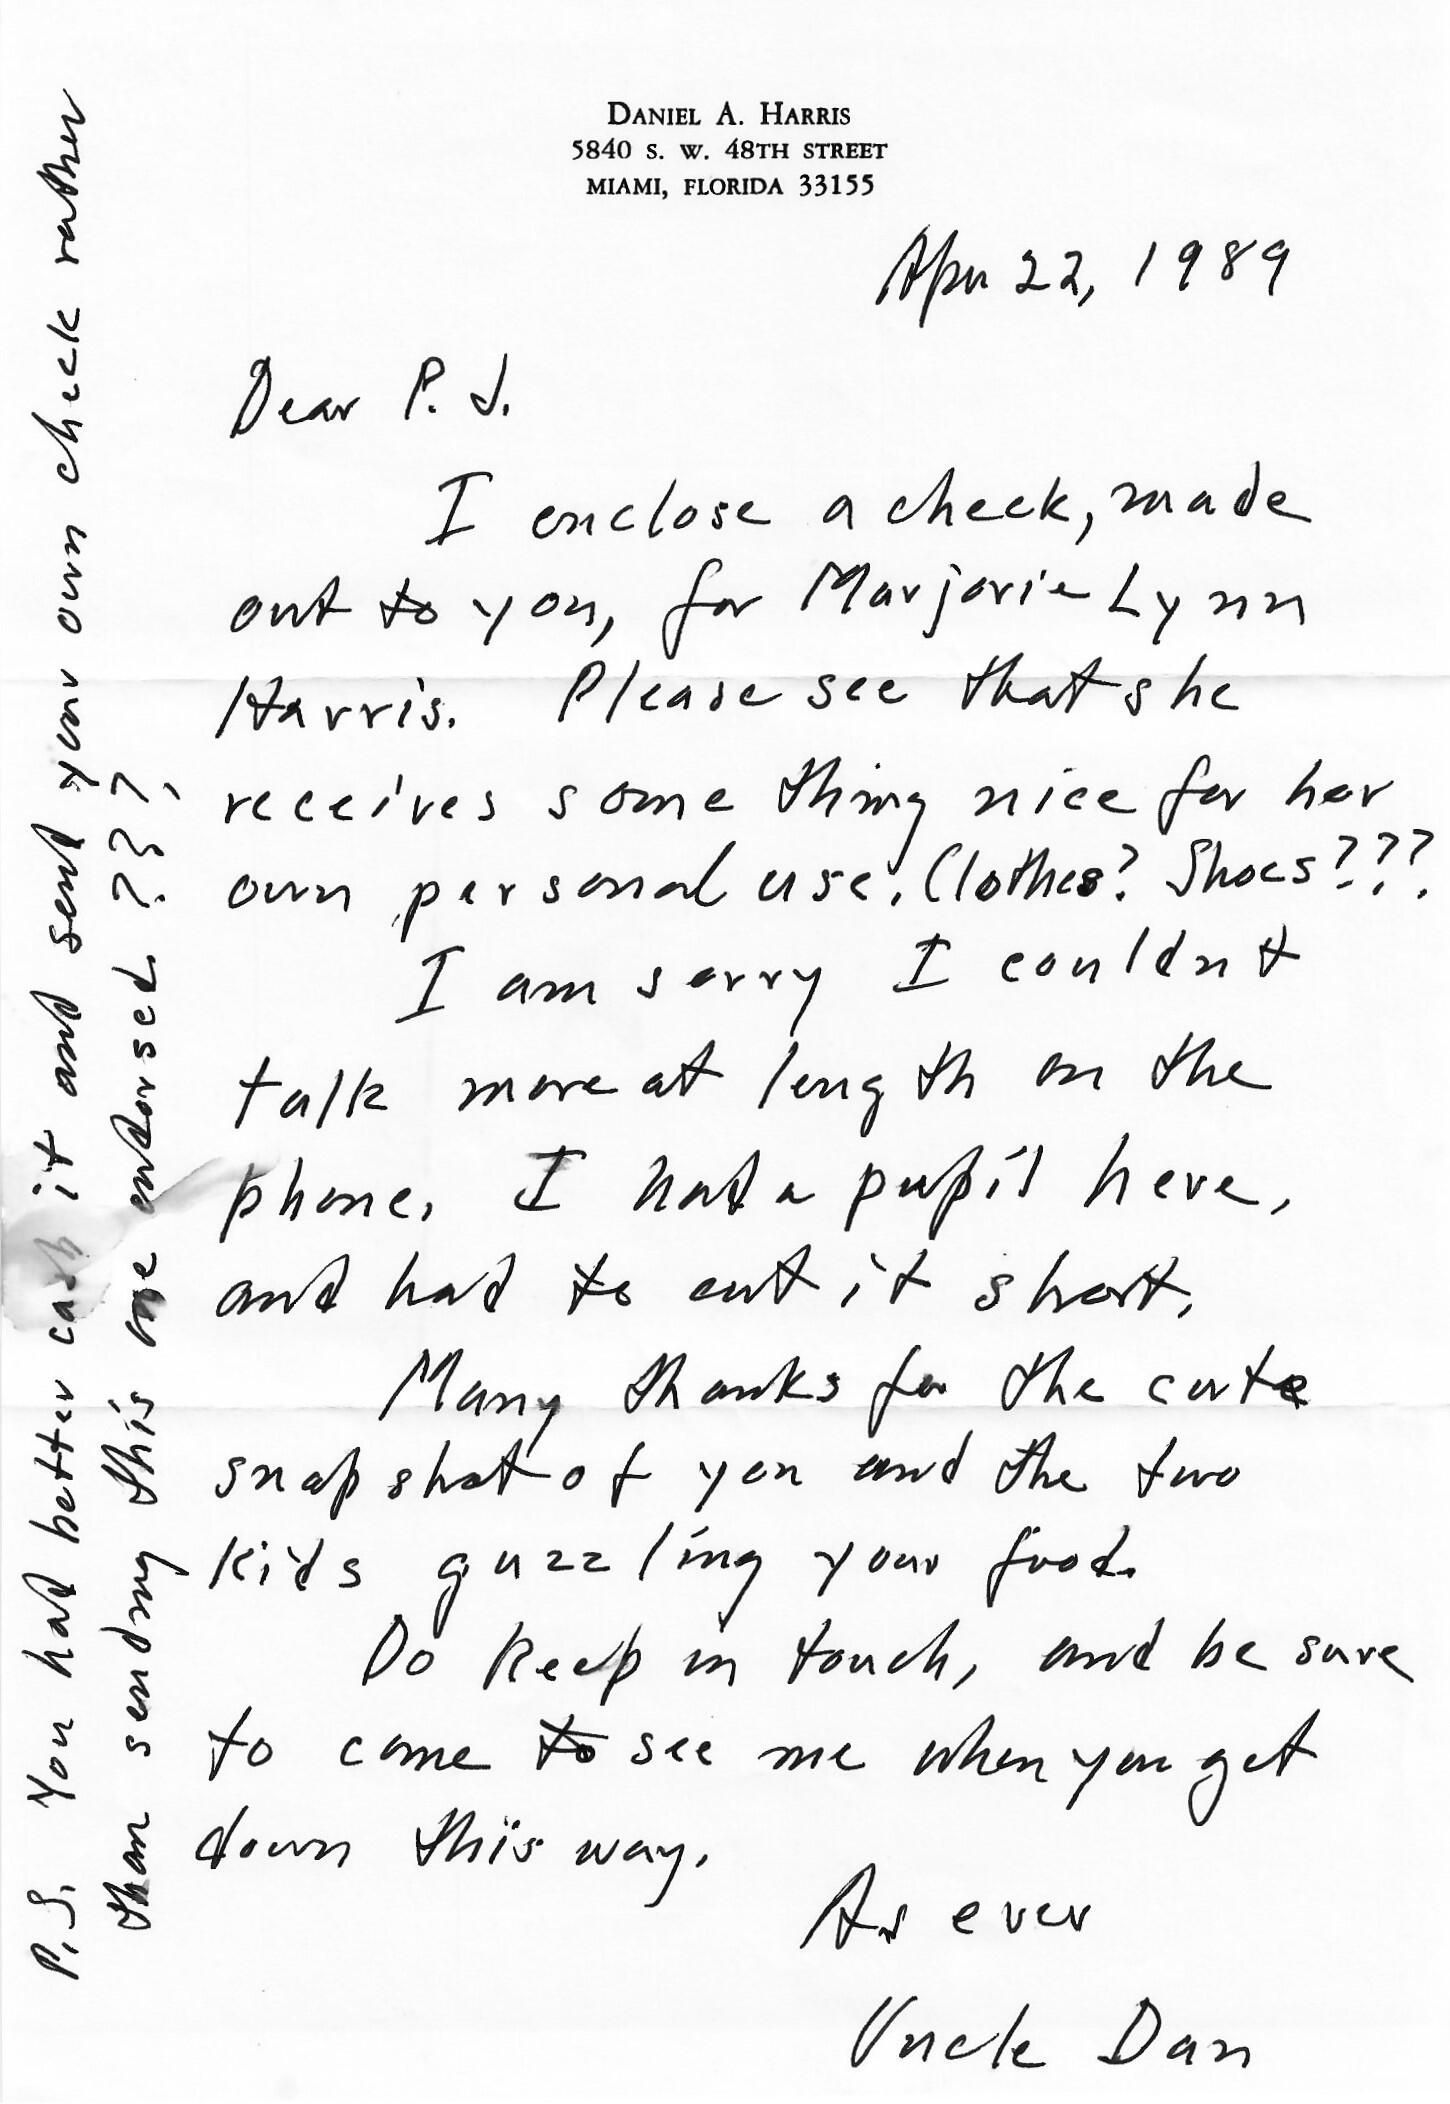 DANIEL A. HARRIS
5840 S. W. 48TH STREET
MIAMI, FLORIDA 33155
Apr 22, 1989
Dear P. J.
I enclose a check, made
out to you, for Marjorie Lynn
Harris. Please see that she
receives some thing nice for her
own personal use. Clothes? Shoes???.
I am sorry I couldnt
talk more at length on the
phone. I had a pupil here,
and had to cut it short.
Many thanks for the cute
snapshot of you and the two
kids guzzling your food.
Do keep in touch, and be sure
to come to see me when you get
down this way.
As ever
Uncle Dan
P.S. You had better cash it and send your own check rather
than sending this one endorsed ????,